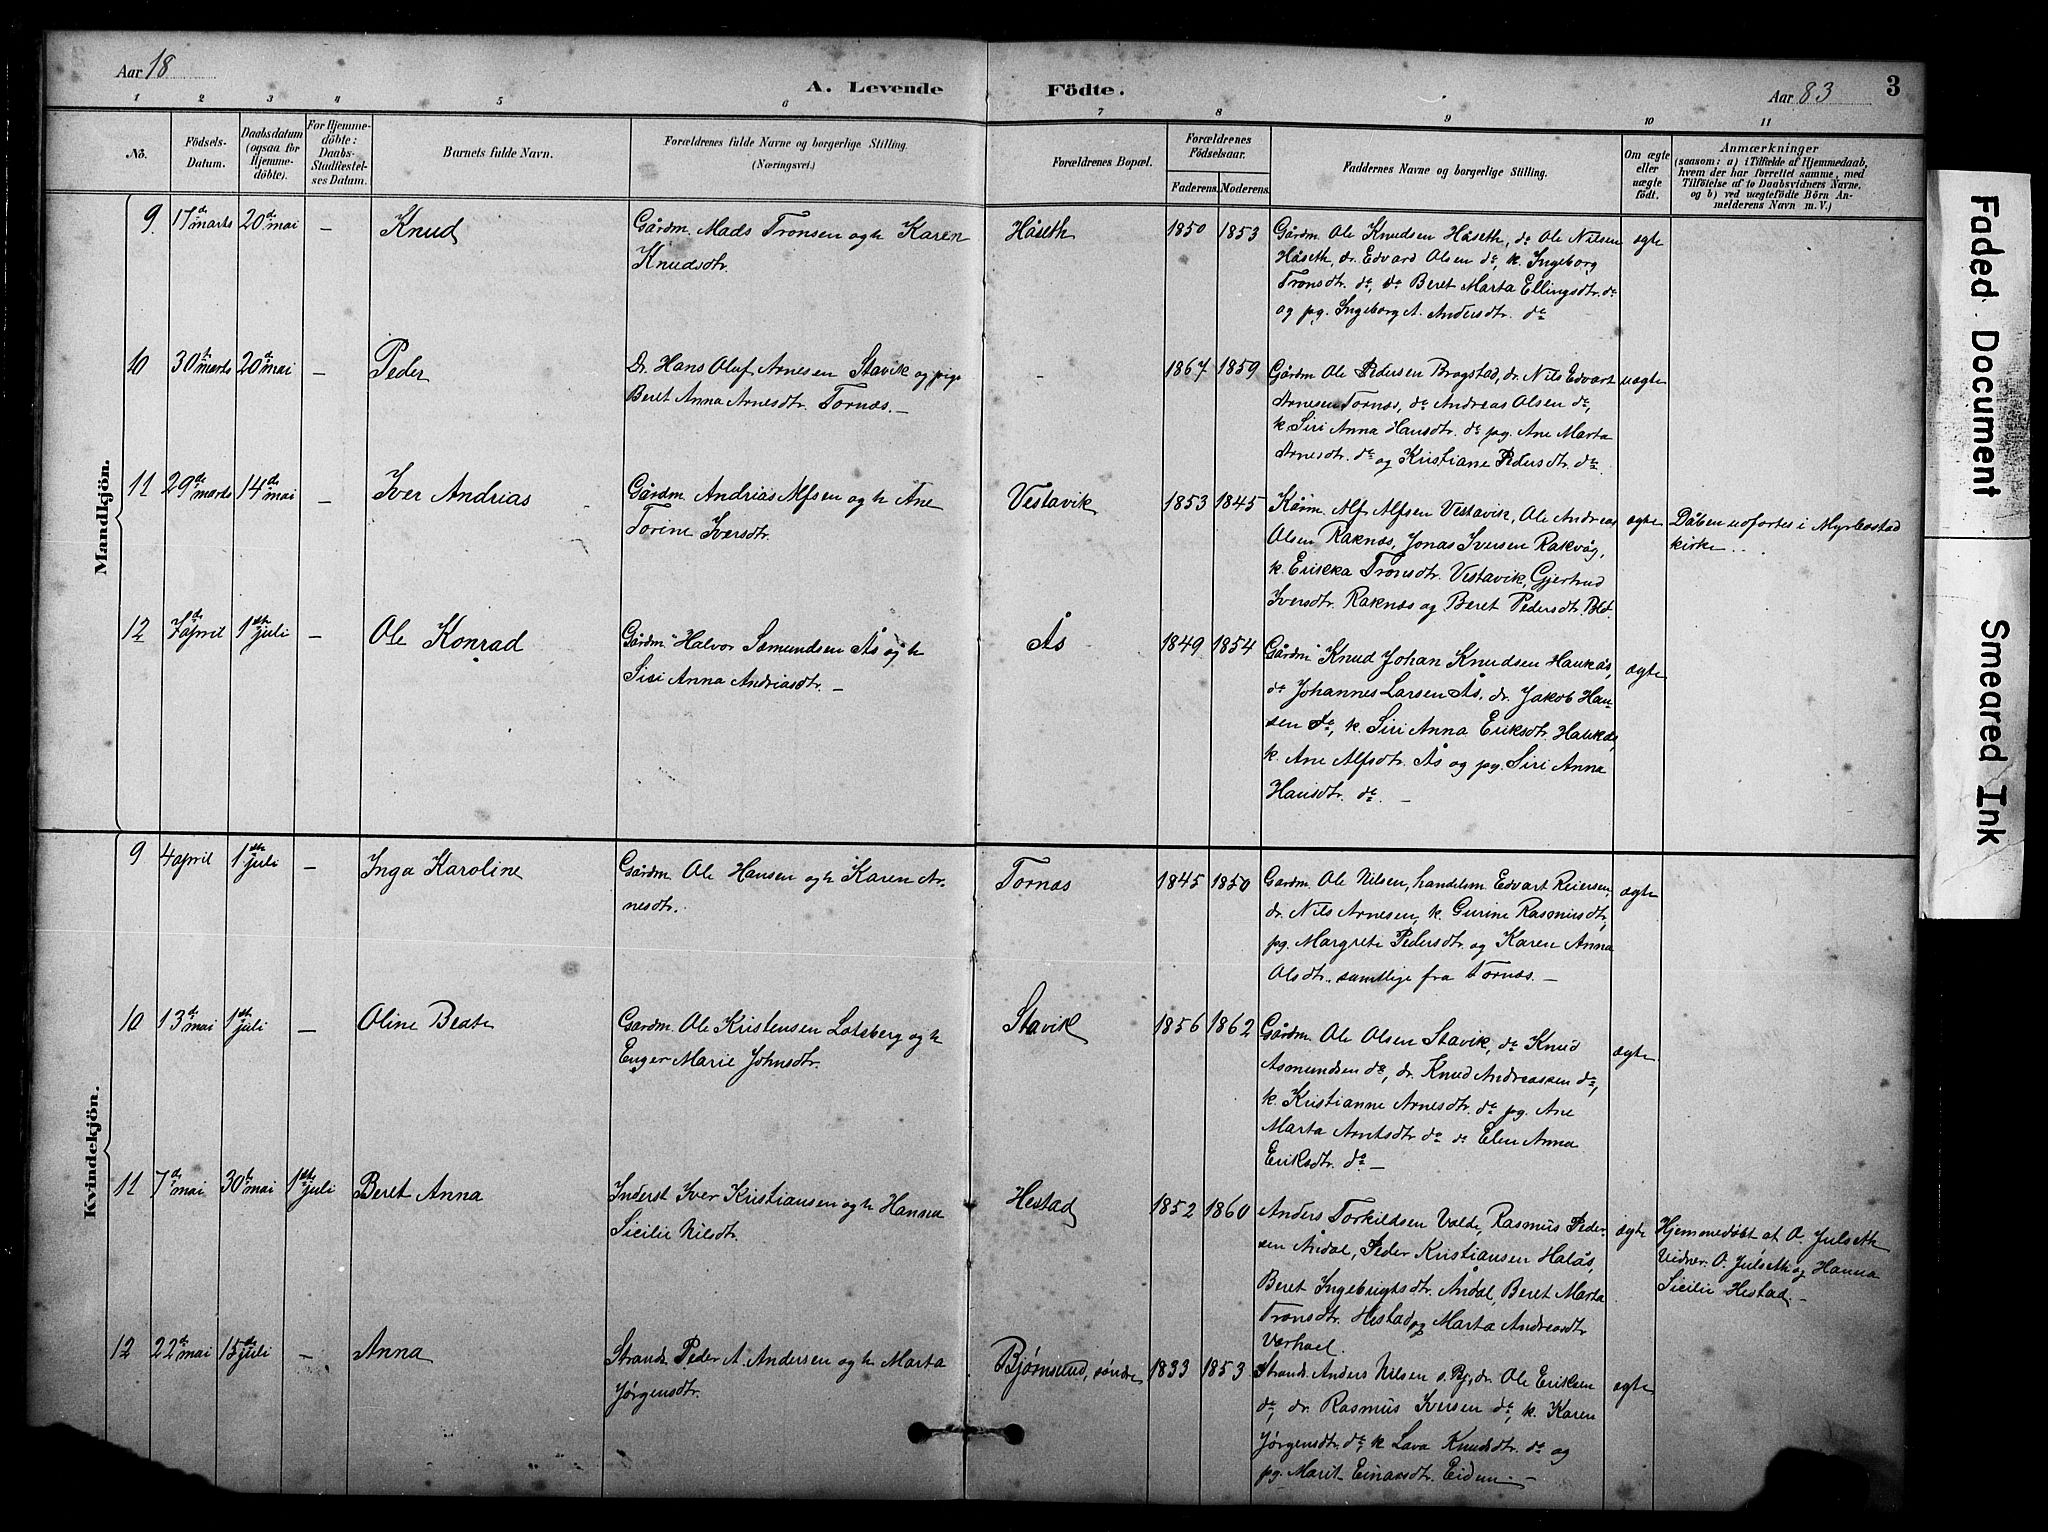 Aar 18
A. Levende Födte.
Aar 83
3
1 2 3 4 5 6 7 8 9 10 11
No.
Födsels-
Datum.
Daabsdatum
(ogsaa for
Hjemme-
döbte).
For Hjemme-
döbte:
Daabs-
Stadfæstel-
ses Datum.
Barnets fulde Navn.
Forældrenes fulde Navne og borgerlige Stilling.
(Næringsvei.)
Forældrenes Bopæl.
Forældrenes
Födselsaar.
Faderens. Moderens.
Faddernes Navne og borgerlige Stilling.
Om ægte
eller
uægte
födt.
Anmærkninger
(saasom: a) i Tilfælde af Hjemmedaab,
hvem der har forrettet samme, med
Tilföielse af to Daabsvidners Navne,
og b) ved uægtefödte Börn An-
melderens Navn m. V.)
Mandkjön.
9. 17de marts 20de mai – Knud
Gårdm. Mads Tronsen og h. Karen
Knudsdtr.
Håseth 1850 1853
Gårdm. Ole Knudsen Håseth, do Ole Nilsen
Håseth, dr. Edvard Olsen do, k. Ingeborg
Tronsdtr. do, do Beret Marta Ellingsdtr. do
og pg. Ingeborg A. Andersdtr. do
ægte
10 30te marts 20de mai – Peder
Dr. Hans Oluf Arnesen Stavik og pige
Beret Anna Arnesdtr. Tornæs. –
- 1867 1859
Gårdm. Ole Pedersen Bragstad, dr. Nils Edvart
Arnesen Tornæs, do Andreas Olsen do,
k. Siri Anna Hansdtr. do pg. Ane Marta
Arnesdtr. do og Kristiane Pedersdtr. do.
uægte
11 29de marts 14de mai – Iver Andrias
Gårdm. Andrias Alfsen og h. Ane
Torine Iversdtr.
Vestavik 1853 1845
Kårm. Alf Alfsen Vestavik, Ole Andreas
Olsen Raknæs, Jonas Iversen Rakvåg,
k. Erikka Tronsdtr. Vestavik, Gjertrud
Iversdtr. Raknæs og Beret Pedersdtr.
ægte
Dåben udførtes i Myrbostad
kirke..
12 7de april 1ste juli – Ole Konrad
Gårdm. Halvor Sæmundsen Ås og h.
Siri Anna Andriasdtr. –
Ås 1849 1854
Gårdm. Knud Johan Knudsen Haukås,
do Johannes Larsen Ås, dr. Jakob Han-
sen do, k. Siri Anna Eriksdtr. Haukås,
k. Ane Alfsdtr. Ås og pg. Siri Anna
Hansdtr. do. –
ægte
Kvindekjön.
9 4 april 1ste juli – Inga Karoline
Gårdm. Ole Hansen og h. Karen Ar-
nesdtr.
Tornæs 1845 1850
Gardm. Ole Nilsen, handelsm Edvart Reiersen,
dr. Nils Arnesen, k. Gurine Rasmusdtr,
pg. Margrete Pedersdtr. og Karen Anna
Olsdtr. samtlige fra Tornæs. –
ægte
10 13de mai 1ste juli – Oline Beate
Gardm. Ole Kristensen Lotsberg og h.
Enger Marie Johnsdtr.
Stavik 1856 1862
Gårdm. Ole Olsen Stavik, do Knud
Asmundsen do, dr. Knud Andreassen do,
k. Kristianne Arnesdtr. do pg. Ane
Marta Arntsdtr do do Elen Anna
Eriksdtr. do –
ægte
11 7de mai 30te mai 1ste juli Beret Anna
Inderst Iver Kristiansen og h. Hanna
Sicilie Nilsdtr.
Hestad 1852 1860
Anders Torkildsen Valde, Rasmus Peder-
sen Ådal, Peder Kristiansen Halås,
Beret Ingebrigtsdtr. Ådal, Beret Marta
Tronsdtr. Hestad og Marta Andreasdtr
ægte
Hjemmedøbt af O. Julseth
Vidner: O. Julseth og Hanna
Sicilie Hestad. –
12 22de mai 15de juli – Anna
Strands. Peder A. Andersen og h. Marta
Jørgensdtr.
Bjørnsund, søndre 1833 1853
Strands. Anders Nilsen s. Bj., dr. Ole Eriksen
do, dr. Rasmus Iversen do, k. Karen
Jørgensdtr. do, k Lava Knudsdtr. do og
pg. Marit Einarsdtr. Eidem. –
ægte
Faded Document
Smeared Ink